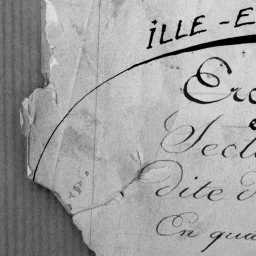 ILLE-E
Ero
e
Secti
dite d
En qua